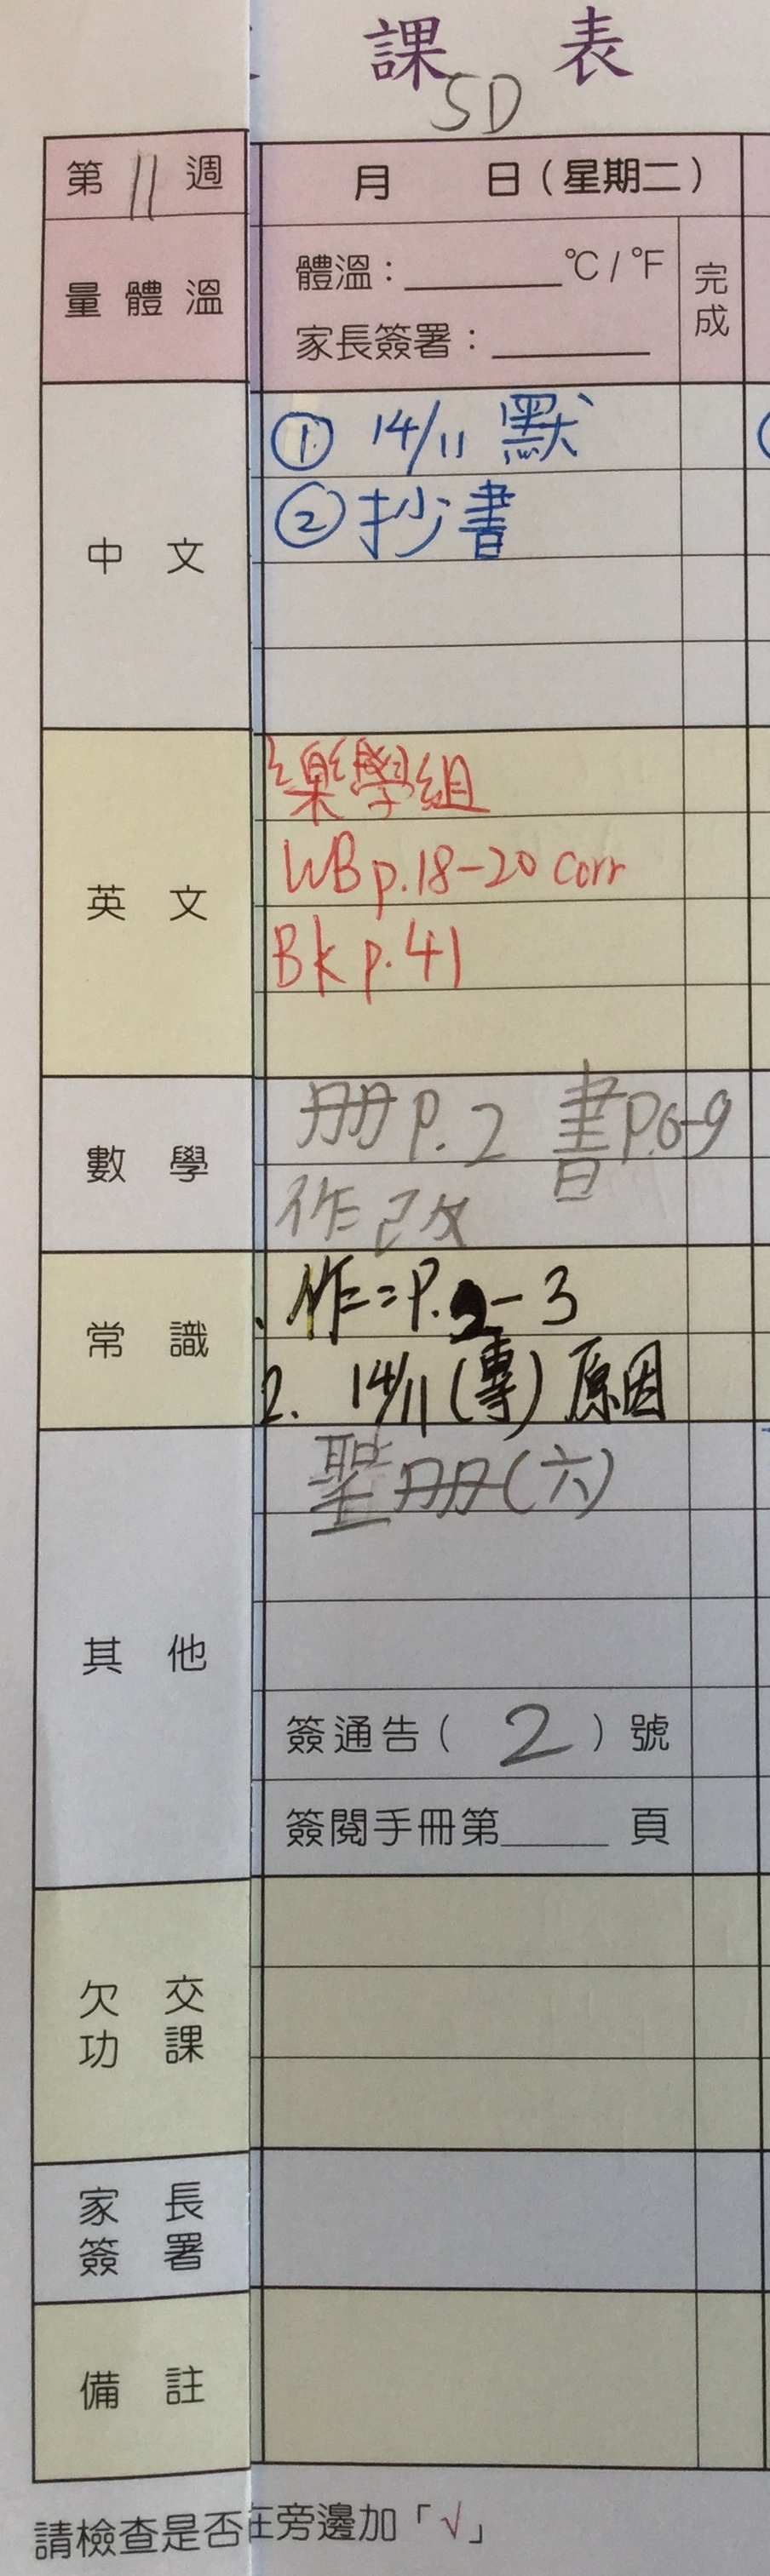 課表
5D
第11週
月 日(星期二)
量體溫
體溫:______°C/°F
完成
家長簽署:______
中文
① 14/11 默
② 抄書
英文
樂學組
WB p.18-20 corr
Bk p.41
數學
册P.2 書P.6-9
作改
常識
作二P.2-3
2. 14/11(專)原因
其他
聖册(六)
簽通告( 2 )號
簽閱手冊第____頁
欠交功課
家長簽署
備註
請檢查是否在旁邊加「√」